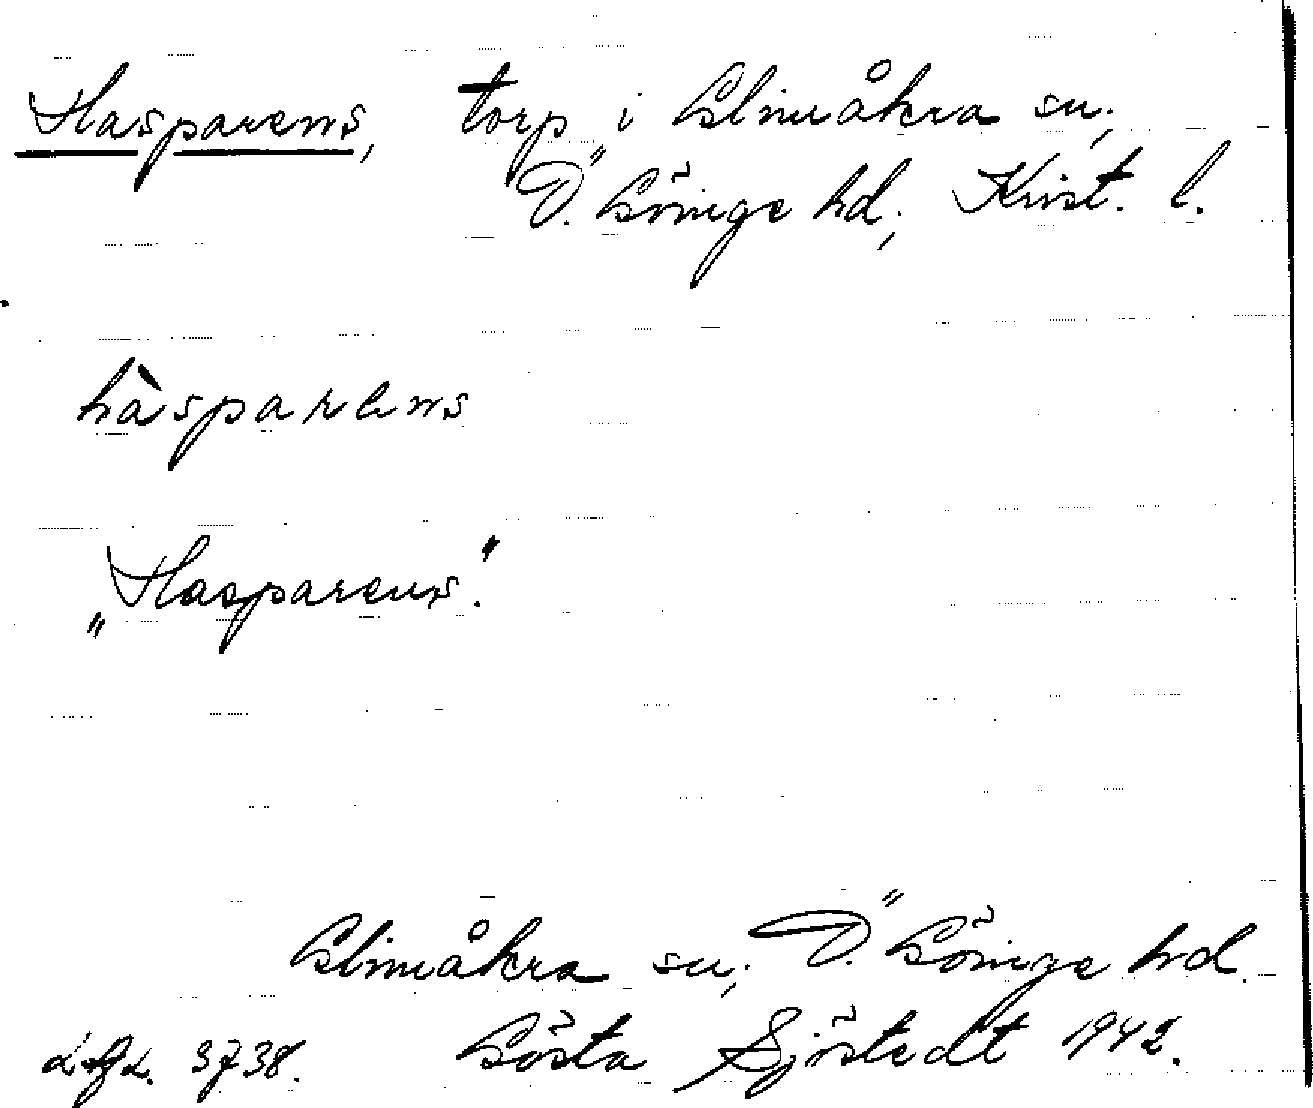 Hasparens, torp i Glimåkra sn,
Ö. Göinge hd, Krist. l.
hàsparens
"Hasparens".
Glimåkra sn, Ö. Göinge hd
3738. Gösta Sjöstedt 1942.